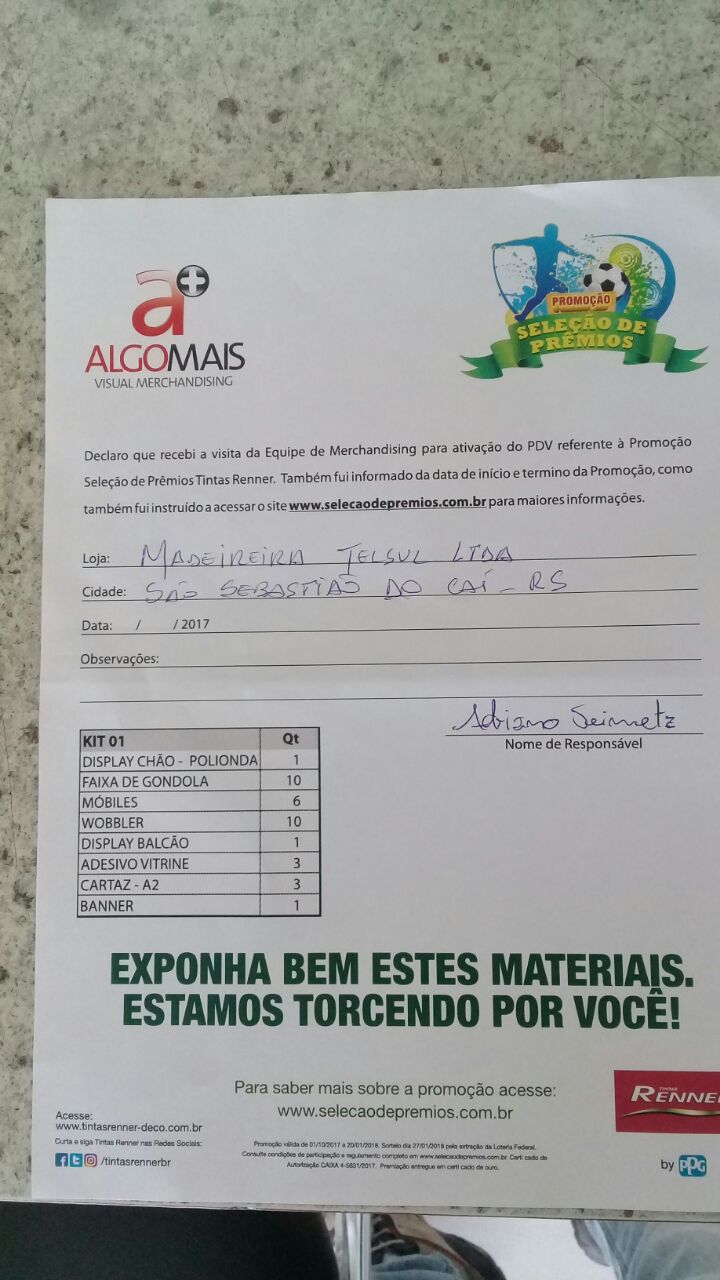 a+
ALGOMAIS
VISUAL MERCHANDISING
PROMOÇÃO
SELEÇÃO DE
PRÊMIOS
Declaro que recebi a visita da Equipe de Merchandising para ativação do PDV referente à Promoção
Seleção de Prêmios Tintas Renner. Também fui informado da data de início e termino da Promoção, como
também fui instruído a acessar o site www.selecaodepremios.com.br para maiores informações.
Loja: MADEIREIRA TELSUL LTDA
Cidade: SÃO SEBASTIÃO DO CAÍ - RS
Data: / / 2017
Observações:
Adriano Seimetz
Nome de Responsável
KIT 01 Qt
DISPLAY CHÃO - POLIONDA 1
FAIXA DE GONDOLA 10
MÓBILES 6
WOBBLER 10
DISPLAY BALCÃO 1
ADESIVO VITRINE 3
CARTAZ - A2 3
BANNER 1
EXPONHA BEM ESTES MATERIAIS.
ESTAMOS TORCENDO POR VOCÊ!
Para saber mais sobre a promoção acesse:
www.selecaodepremios.com.br
TINTAS
RENNE
Acesse:
www.tintasrenner-deco.com.br
Curta e siga Tintas Renner nas Redes Sociais:
/tintasrennerbr
Promoção válida de 01/10/2017 a 20/01/2018. Sorteio dia 27/01/2018 pela extração da Loteria Federal.
Consulte condições de participação e regulamento completo em www.selecaodepremios.com.br. Certi cado de
Autorização CAIXA 4-5631/2017. Premiação entregue em certi cado de ouro.
by PPG